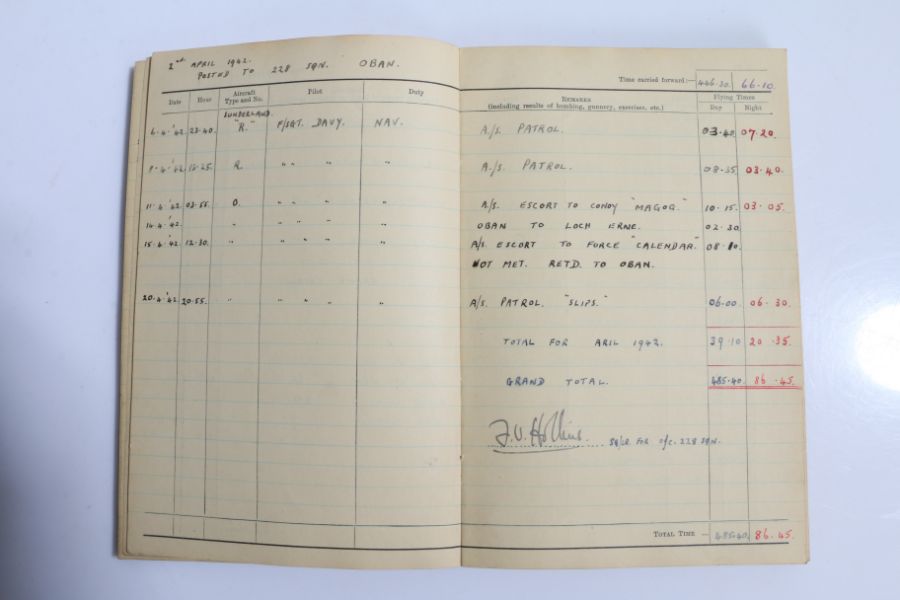 2nd APRIL 1942.
POSTED TO 228 SQN. OBAN.
Date Hour Aircraft Type and No. Pilot Duty
SUNDERLAND.
6.4.'42. 23.40. "R." F/SGT. DAVY. NAV.
R. " " " "
11.4.'42 03.55. O. " " " "
14.4.'42. " " " " "
15.4.'42 12.30. " " " " "
20.4.'42. 20.55. " " " " "
Time carried forward:— 446.30. 66.10.
REMARKS (including results of bombing, gunnery, exercises, etc.) Flying Times Day Night
A/S. PATROL. 03.40 07.20
A/S. PATROL. 08.35 03.40.
A/S. ESCORT TO CONOY "MAGOG." 10.15. 03.05.
OBAN TO LOCH ERNE. 02.30.
A/S ESCORT TO FORCE "CALENDAR." 08.10.
NOT MET. RETD. TO OBAN.
A/S. PATROL. "SLIPS." 06.00. 06.30.
TOTAL FOR ARIL 1942. 39.10 20.35.
GRAND TOTAL. 485.40. 86.45.
J.V. Hollins. SQ/LR. FOR O/C. 228 SQN.
TOTAL TIME — 485.40. 86.45.